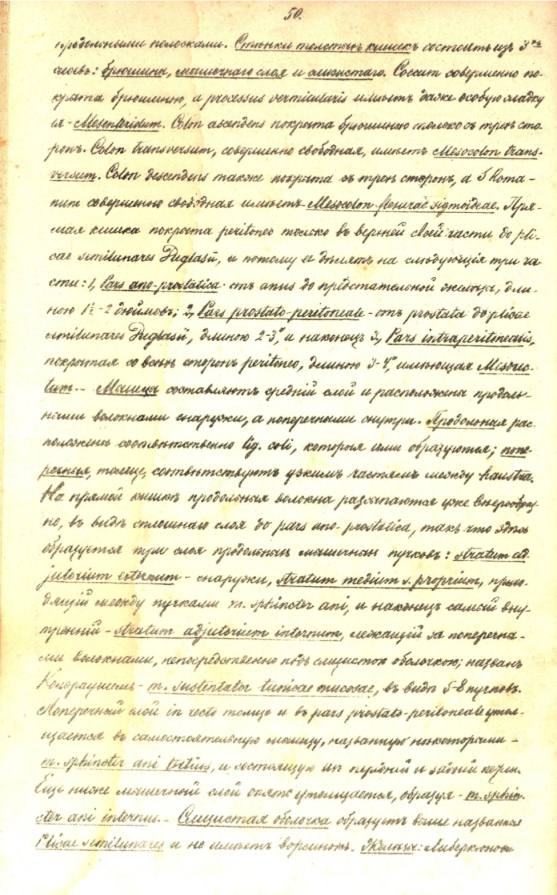 50.
продольными полосками. Стѣнки толстыхъ кишекъ состоятъ изъ 3хъ
слоевъ: брюшины, мышечнаго слоя и слизистаго. Coecum совершенно по-
крыта брюшиною, а processus vermicularis имѣетъ даже особую складку
ея - Mesenteriolum. Colon ascendens покрыта брюшиною только съ трехъ сто-
ронъ. Colon transversum, совершенно свободная, имѣетъ Mesocolon trans-
versum. Colon descendens также покрыта съ трехъ сторонъ, а S Rома-
пит совершенно свободная имѣетъ - Mesocolon flexurae sigmoideae. Пря-
мая кишка покрыта peritoneo только въ верхней своей части до pli-
cae semilunares Duglasii, и потому ее дѣлятъ на слѣдующія три ча-
сти: 1, Pars ano-prostatica - отъ anus до предстательной железы, дли-
ною 1½-2 дюймовъ; 2, Pars prostato-peritoneale - отъ prostata до plicae
semilunares Duglasii, длиною 2-3" и наконецъ 3, Pars intraperitonealis,
покрытая со всѣхъ сторонъ peritoneo, длиною 3-4", имѣющая Mesorec-
tum. - Мышцы составляютъ средній слой и расположены продоль-
ными волокнами снаружи, а поперечными снутри. Продольныя рас-
положены соотвѣтственно lig. coli, которыя ими образуются; попе-
речныя, толще, соотвѣтствуютъ узкимъ частямъ между haustra.
На прямой кишкѣ продольныя волокна разлагаются уже вѣерообраз-
но, въ видѣ сплошнаго слоя до pars ano-prostatica, такъ что здѣсь
образуется три слоя продольныхъ мышечныхъ пучковъ: stratum ad-
jutorium externum - снаружи, stratum medium s. proprium, прохо-
дящій между пучками m. sphincter ani, и наконецъ самый вну-
тренній - stratum adjutorium internum, лежащій за поперечны-
ми волокнами, непосредственно подъ слизистою оболочкою; названъ
m. sustentator tunicae mucosae, въ видѣ 5-8 пучковъ.
Поперечный слой in recto толще и въ pars prostato-peritoneale утол-
щается въ самостоятельную мышцу, названную нѣкоторыми -
m. sphincter ani tertius, и состоящую изъ передней и задней
Еще ниже мышечный слой опять утолщается, образуя - m. sphin-
cter ani internus. - Слизистая оболочка образуетъ выше названныя
plicae semilunares и не имѣетъ ворсинокъ. Железы: Либеркюновы